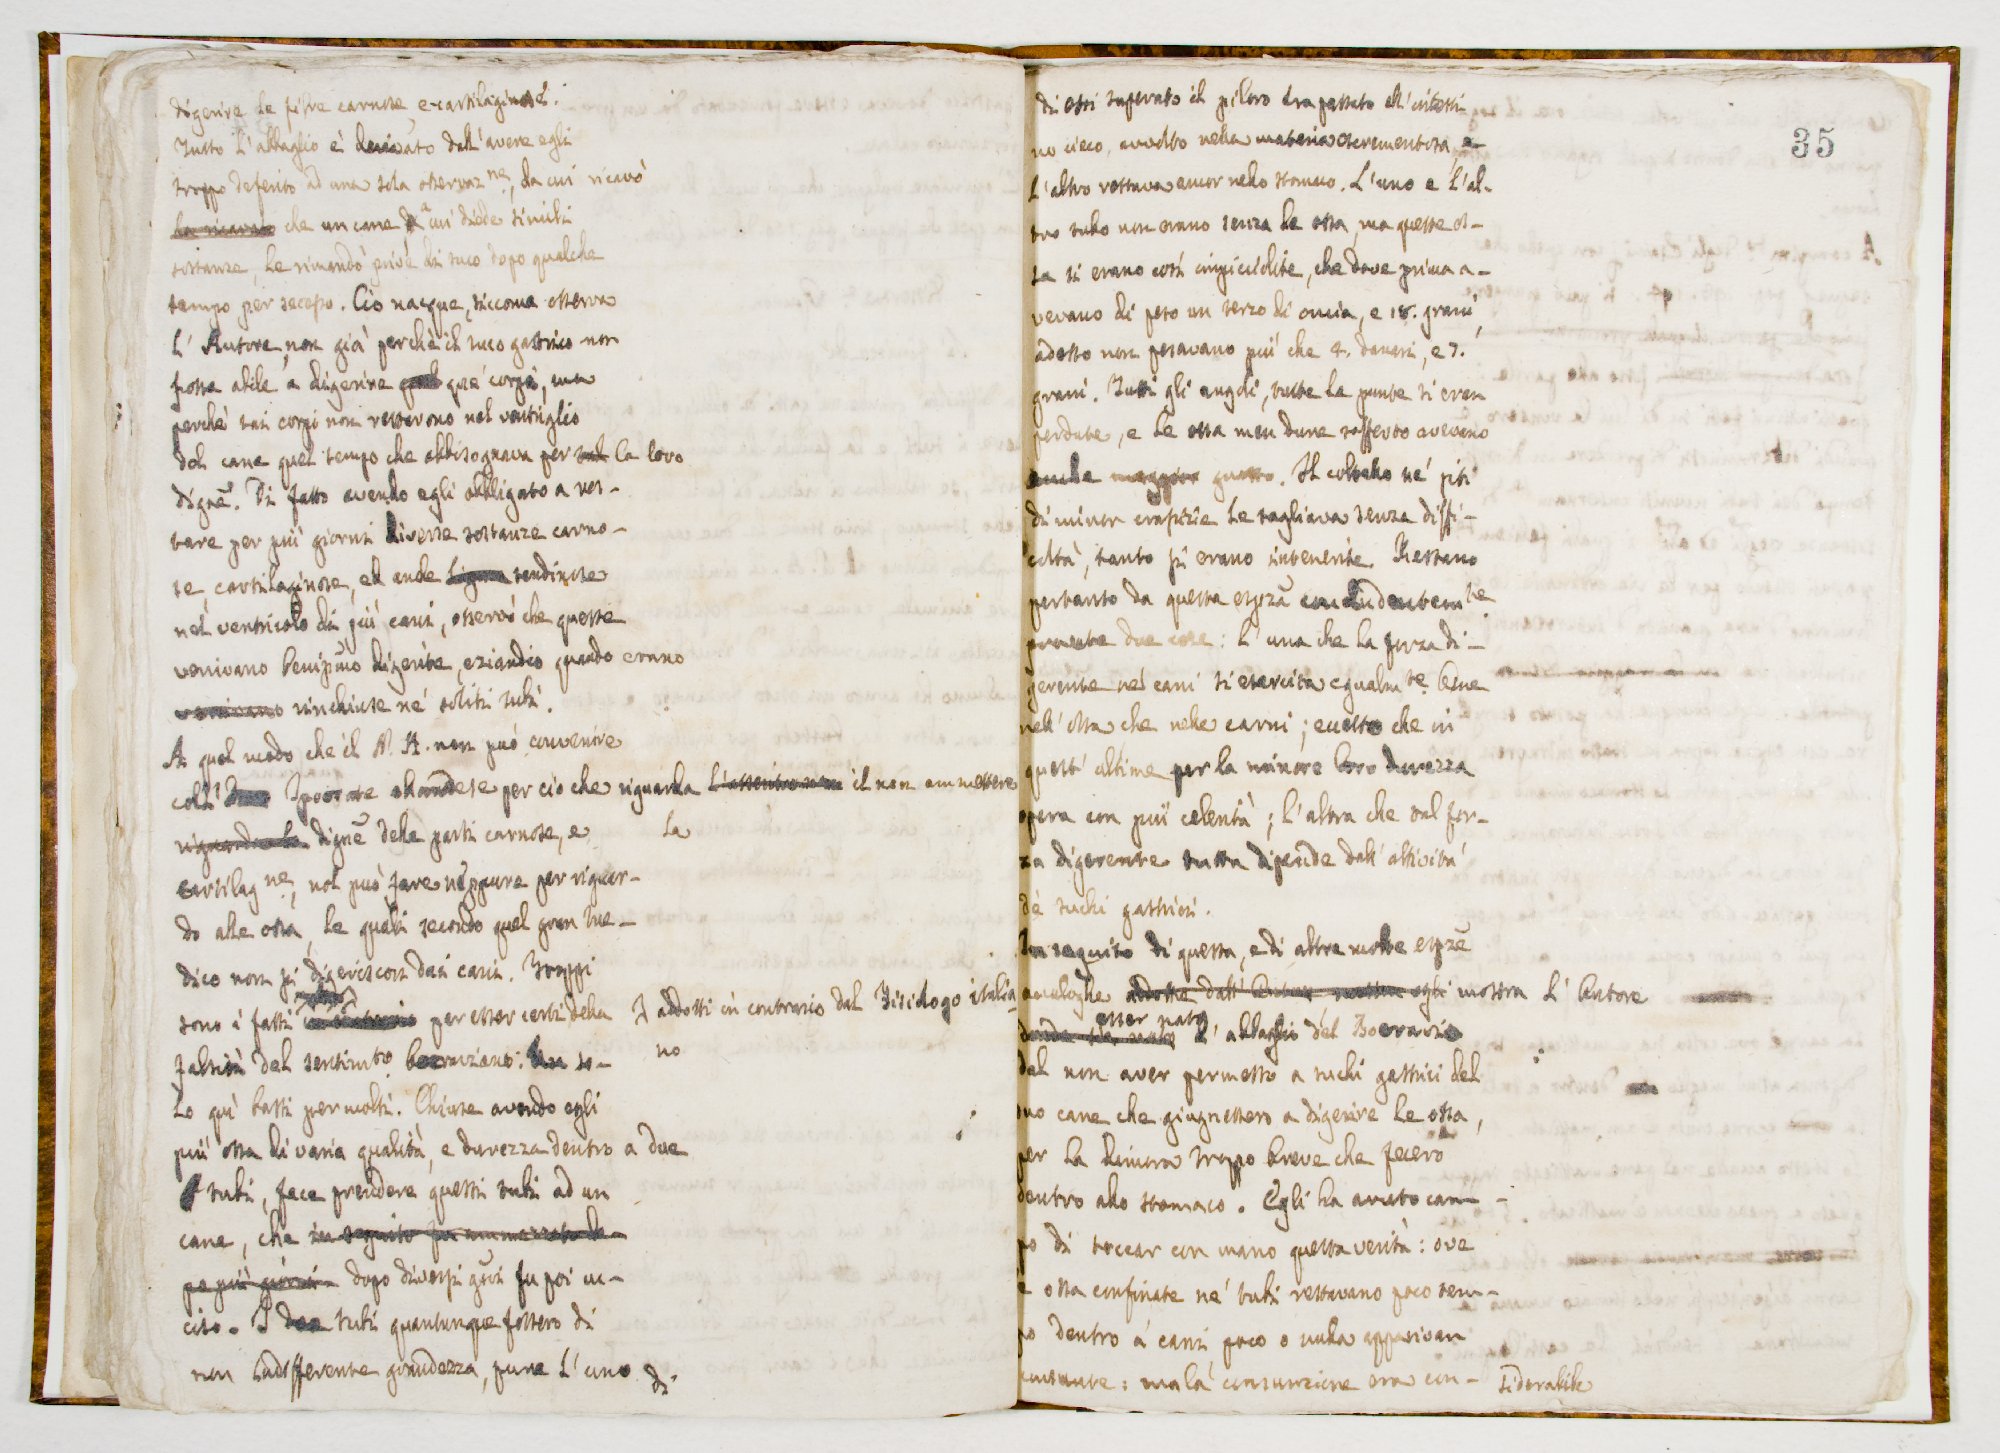 digerire le fibre carnose, e cartilaginose.
Tutto l'abbaglio è derivato dall'avere egli
troppo deferito ad una sola osservaz.ne, da cui ricavò
che un cane a cui diede simili
sostanze, le rimandò prive di suco dopo qualche
tempo per secesso. Ciò nacque, siccome osserva
l'Autore, non già perchè il suco gastrico non
fosse abile a digerire que' corpi, ma
perchè tai corpi non restarono nel ventriglio
del cane quel tempo che abbisognava per la loro
digne. Di fatto avendo egli obbligato a res-
tare per più giorni diverse sostanze carno-
se, cartilaginose, ed anche tendinose
nel ventricolo di più cani, osservò che queste
venivano benissimo digerite, eziandio quando erano
rinchiuse ne' soliti tubi.
A quel modo che il N. A. non può convenire
coll' Ipocrate olandese per ciò che riguarda il non ammettere
la
digne delle parti carnose, e
cartilag.ne, nol può fare neppure per riguar-
do alle ossa, le quali secondo quel gran Me-
dico non si digeriscon dai cani. Troppi
sono i fatti per esser certi della
falsità del sentim.to boeraviano: Un so-
addotti in contrario dal Fisiologo italia
no
lo quì basti per molti. Chiuse avendo egli
più ossa di varia qualità, e durezza dentro a due
tubi, fece prendere questi tubi ad un
cane, che in seguito fu ammazzato do-
po più giorni dopo diversi gni fu poi uc-
ciso. I due tubi quantunque fossero di
non indifferente grandezza, pure l'uno
di
35
di essi superato il piloro era passato all'intesti-
no cieco, avvolto nella materia escrementosa, e
l'altro restava ancor nello stomaco. L'uno e l'al-
tro tubo non erano senza le ossa, ma queste os-
sa si erano così impicciolite, che dove prima a-
vevano di peso un terzo di oncia, e 18. grani,
adesso non pesavano più che 4. danari, e 7.
grani. Tutti gli angoli, tutte le punte si eran
perdute, e le ossa men dure sofferto avevano
anche maggior guasto. Il coltello ne' siti
di minor crassizie le tagliava senza diffi-
coltà, tanto si erano intenerite. Restano
pertanto da questa espza concludentem.te
provate due cose: l'una che la forza di-
gerente ne' cani si esercita egualm.te bene
nell'ossa che nelle carni; eccetto che in
quest' ultime per la minore loro durezza
opera con più celerità; l'altra che tal for-
za digerente tutta dipende dall'attività
de' suchi gastrici.
In seguito di questa, e di altre molte espze
analoghe addotte dall' Autore mostra l'Autore
esser nato l'abbaglio del Boeravio
dal non aver permesso a suchi gastrici del
suo cane che giugnessero a digerire le ossa,
per la dimora troppo breve che fecero
dentro allo stomaco. Egli ha avuto cam-
po di toccar con mano questa verità: ove
le ossa confinate ne' tubi restavano poco tem-
po dentro a' cani poco o nulla apparivan
consunte: ma la consunzione era con-
siderabile